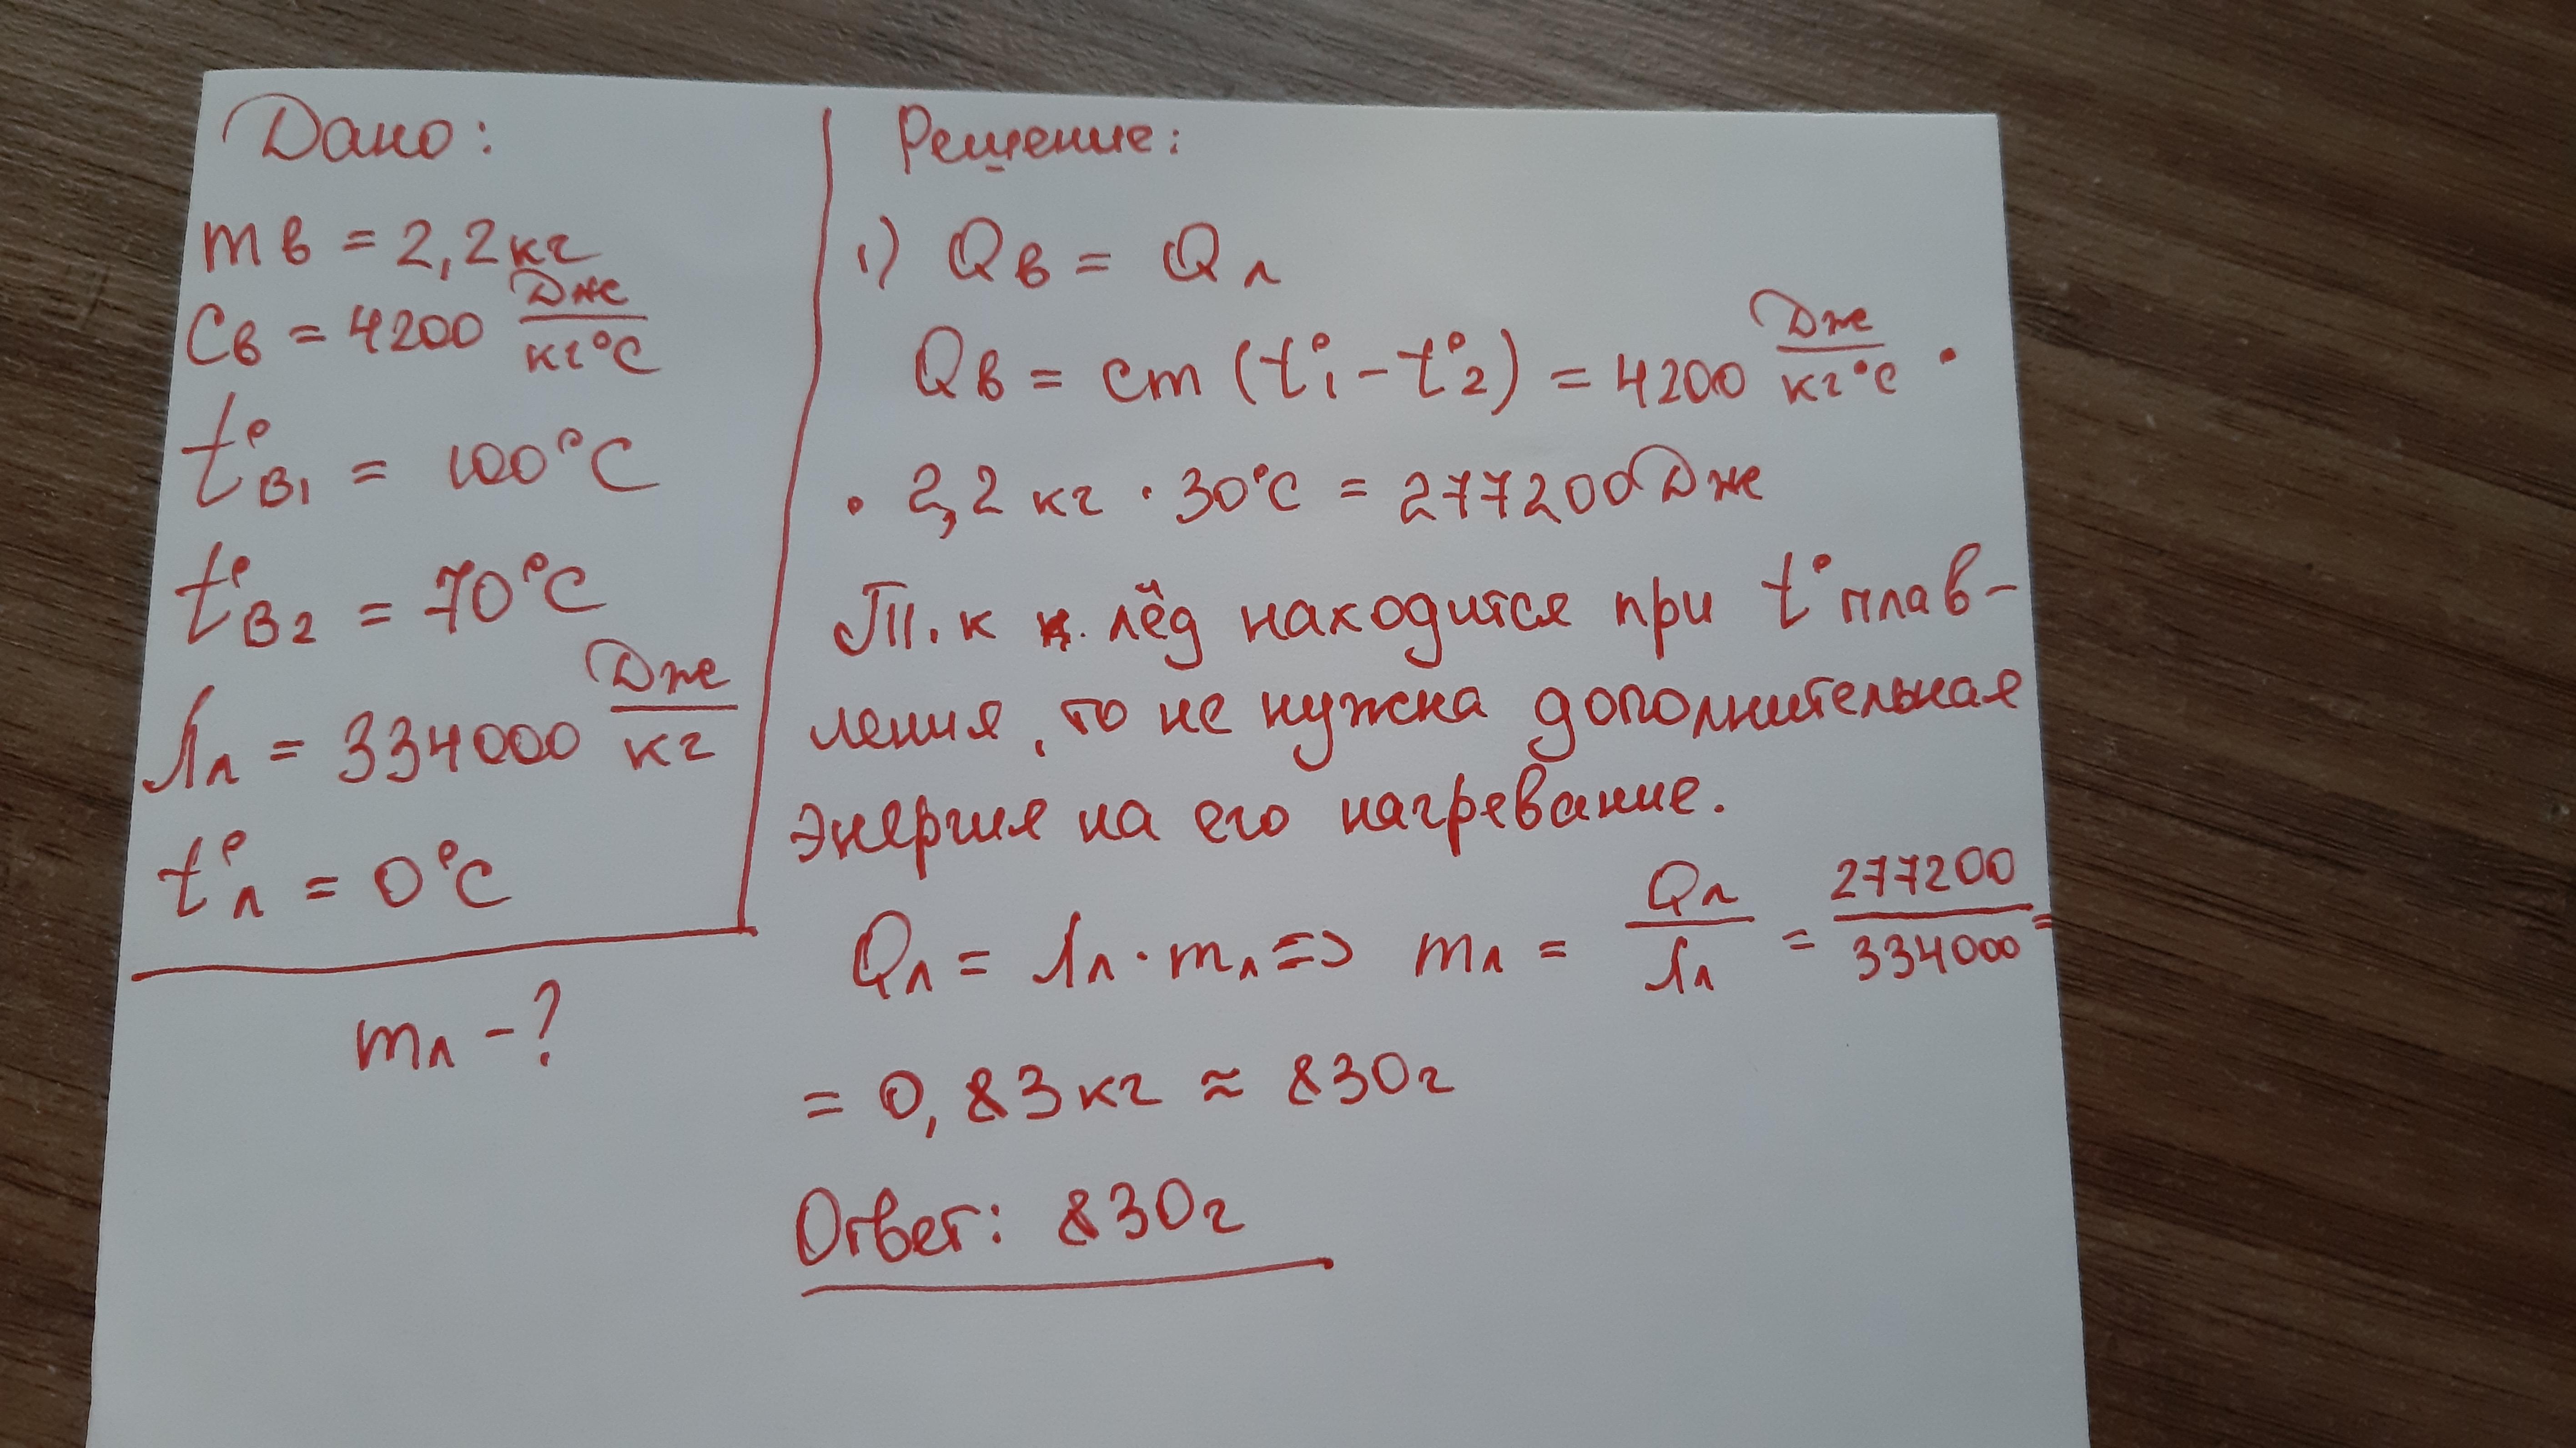 Дано:
mв = 2,2кг
Cв = 4200 Дж/кг°C
t°в1 = 100°C
t°в2 = 70°C
λл = 334000 Дж/кг
t°л = 0°C
mл - ?
Решение:
1) Qв = Qл
Qв = cm (t°1 - t°2) = 4200 Дж/кг°C ·
· 2,2 кг · 30°C = 277200 Дж
Т.к лёд находится при t° плав-
ления, то не нужна дополнительная
энергия на его нагревание.
Qл = λл · mл => mл = Qл/λл = 277200/334000 =
= 0,83кг ≈ 830г
Ответ: 830г